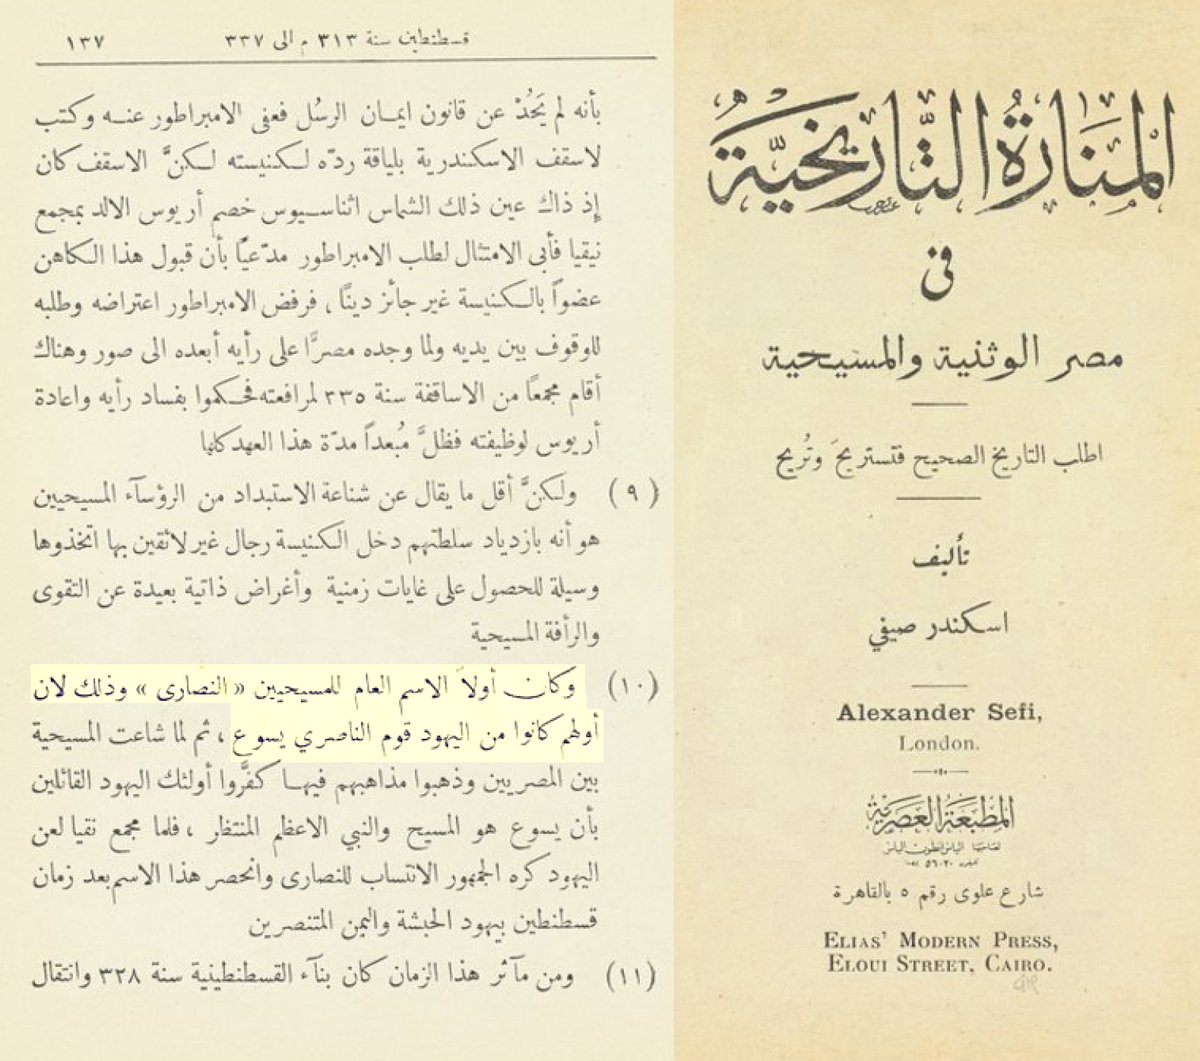 قسطنطين سنة ٣١٣ م الى ٣٣٧ ١٣٧
بأنه لم يَحُدْ عن قانون ايمان الرسُل فعفى الامبراطور عنه وكتب
لاسقف الاسكندرية بلياقة ردّه لكنيسته لكنَّ الاسقف كان
إذ ذاك عين ذلك الشماس اثناسيوس خصم أريوس الالد بمجمع
نيقيا فأبى الامتثال لطلب الامبراطور مدّعيًّا بأن قبول هذا الكاهن
عضواً بالكنيسة غير جائز دينًا ، فرفض الامبراطور اعتراضه وطلبه
للوقوف بين يديه ولما وجده مصرًّا على رأيه أبعده الى صور وهناك
أقام مجمعًا من الاساقفة سنة ٣٣٥ لمرافعته فحكموا بفساد رأيه واعادة
أريوس لوظيفته فظلَّ مُبعداً مدّة هذا العهد كلها
(٩) ولكنَّ أقل ما يقال عن شناعة الاستبداد من الرؤسآء المسيحيين
هو أنه بازدياد سلطتهم دخل الكنيسة رجال غير لائقين بها اتخذوها
وسيلة للحصول على غايات زمنية وأغراض ذاتية بعيدة عن التقوى
والرأفة المسيحية
(١٠) وكان أولاً الاسم العام للمسيحيين « النصارى » وذلك لان
أولهم كانوا من اليهود قوم الناصري يسوع ، ثم لما شاعت المسيحية
بين المصريين وذهبوا مذاهبهم فيها كفَّروا أولئك اليهود القائلين
بأن يسوع هو المسيح والنبي الاعظم المنتظر ، فلما مجمع نقيا لعن
اليهود كره الجمهور الانتساب للنصارى وانحصر هذا الاسم بعد زمان
قسطنطين بيهود الحبشة واليمن المتنصرين
(١١) ومن مآثر هذا الزمان كان بنآء القسطنطينية سنة ٣٢٨ وانتقال
المَنَارَةُ التَّاريخيَّة
في
مصر الوثنية والمسيحية
اطلب التاريخ الصحيح فتستريحَ وتُريح
تأليف
اسكندر صيفي
Alexander Sefi,
London.
المَطْبَعَة العَصْرِيَّة
لصاحبها الياس انطون الياس
شارع علوى رقم ٥ بالقاهرة
ELIAS' MODERN PRESS,
ELOUI STREET, CAIRO.